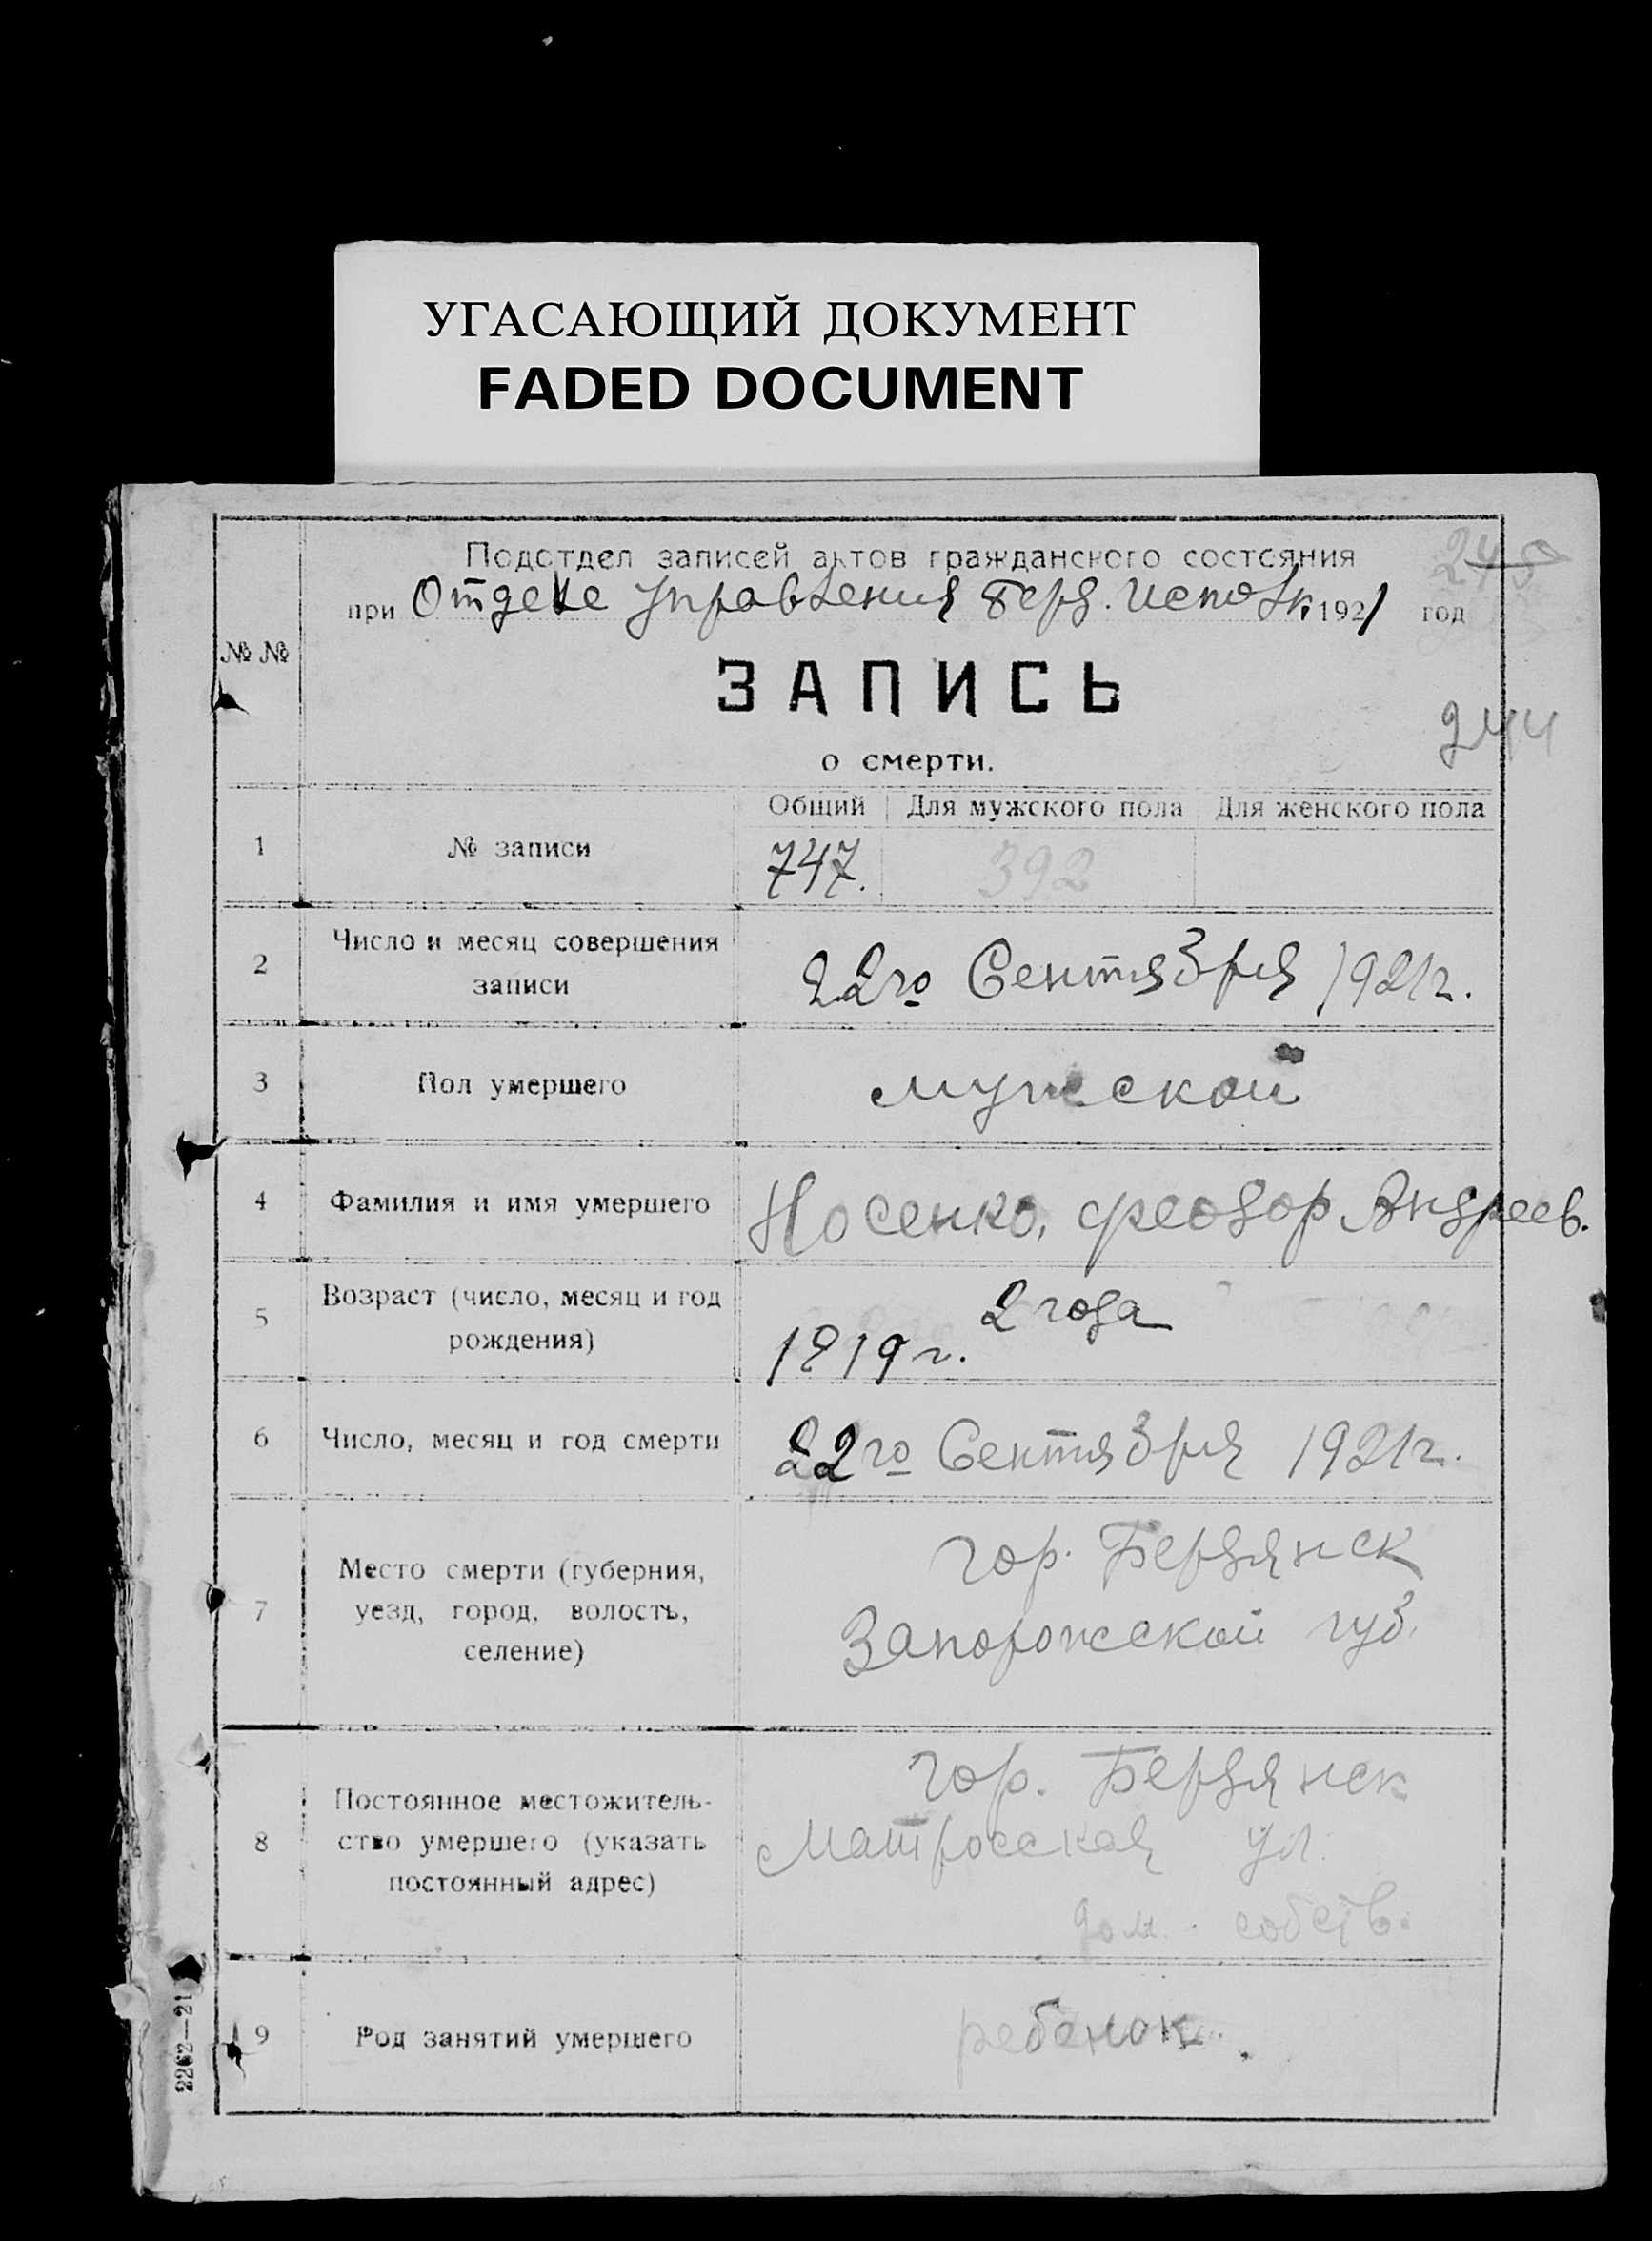 УГАСАЮЩИЙ ДОКУМЕНТ
FADED DOCUMENT
Подотдел записей актов гражданского состояния
245
при Отделе Управления Берд. Исполк. 1921 год
№ №
ЗАПИСЬ
244
о смерти.
Общий Для мужского пола Для женского пола
1 № записи 747. 392
2 Число и месяц совершения
записи
22го Сентября 1921г.
3 Пол умершего мужской
4 Фамилия и имя умершего Носенко, Феодор Андреев.
5 Возраст (число, месяц и год
рождения)
2 года
1919 г.
6 Число, месяц и год смерти 22го Сентября 1921г.
7 Место смерти (губерния,
уезд, город, волость,
селение)
гор. Бердянск
Запорожской губ.
8 Постоянное местожитель-
ство умершего (указать
постоянный адрес)
гор. Бердянск
Матросская ул.
дом. собств.
9 Род занятий умершего ребенок.
2262—21